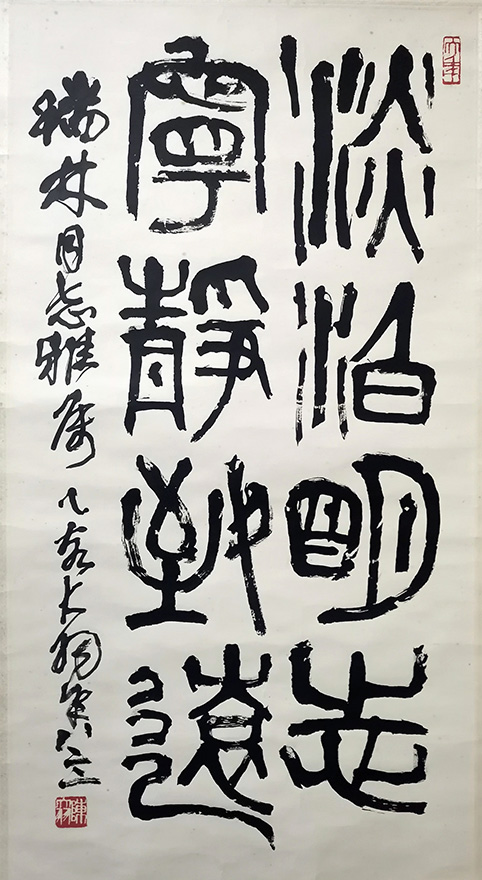 淡泊明志
寧靜致遠
瑞林同志雅屬 乙亥大羽年八三